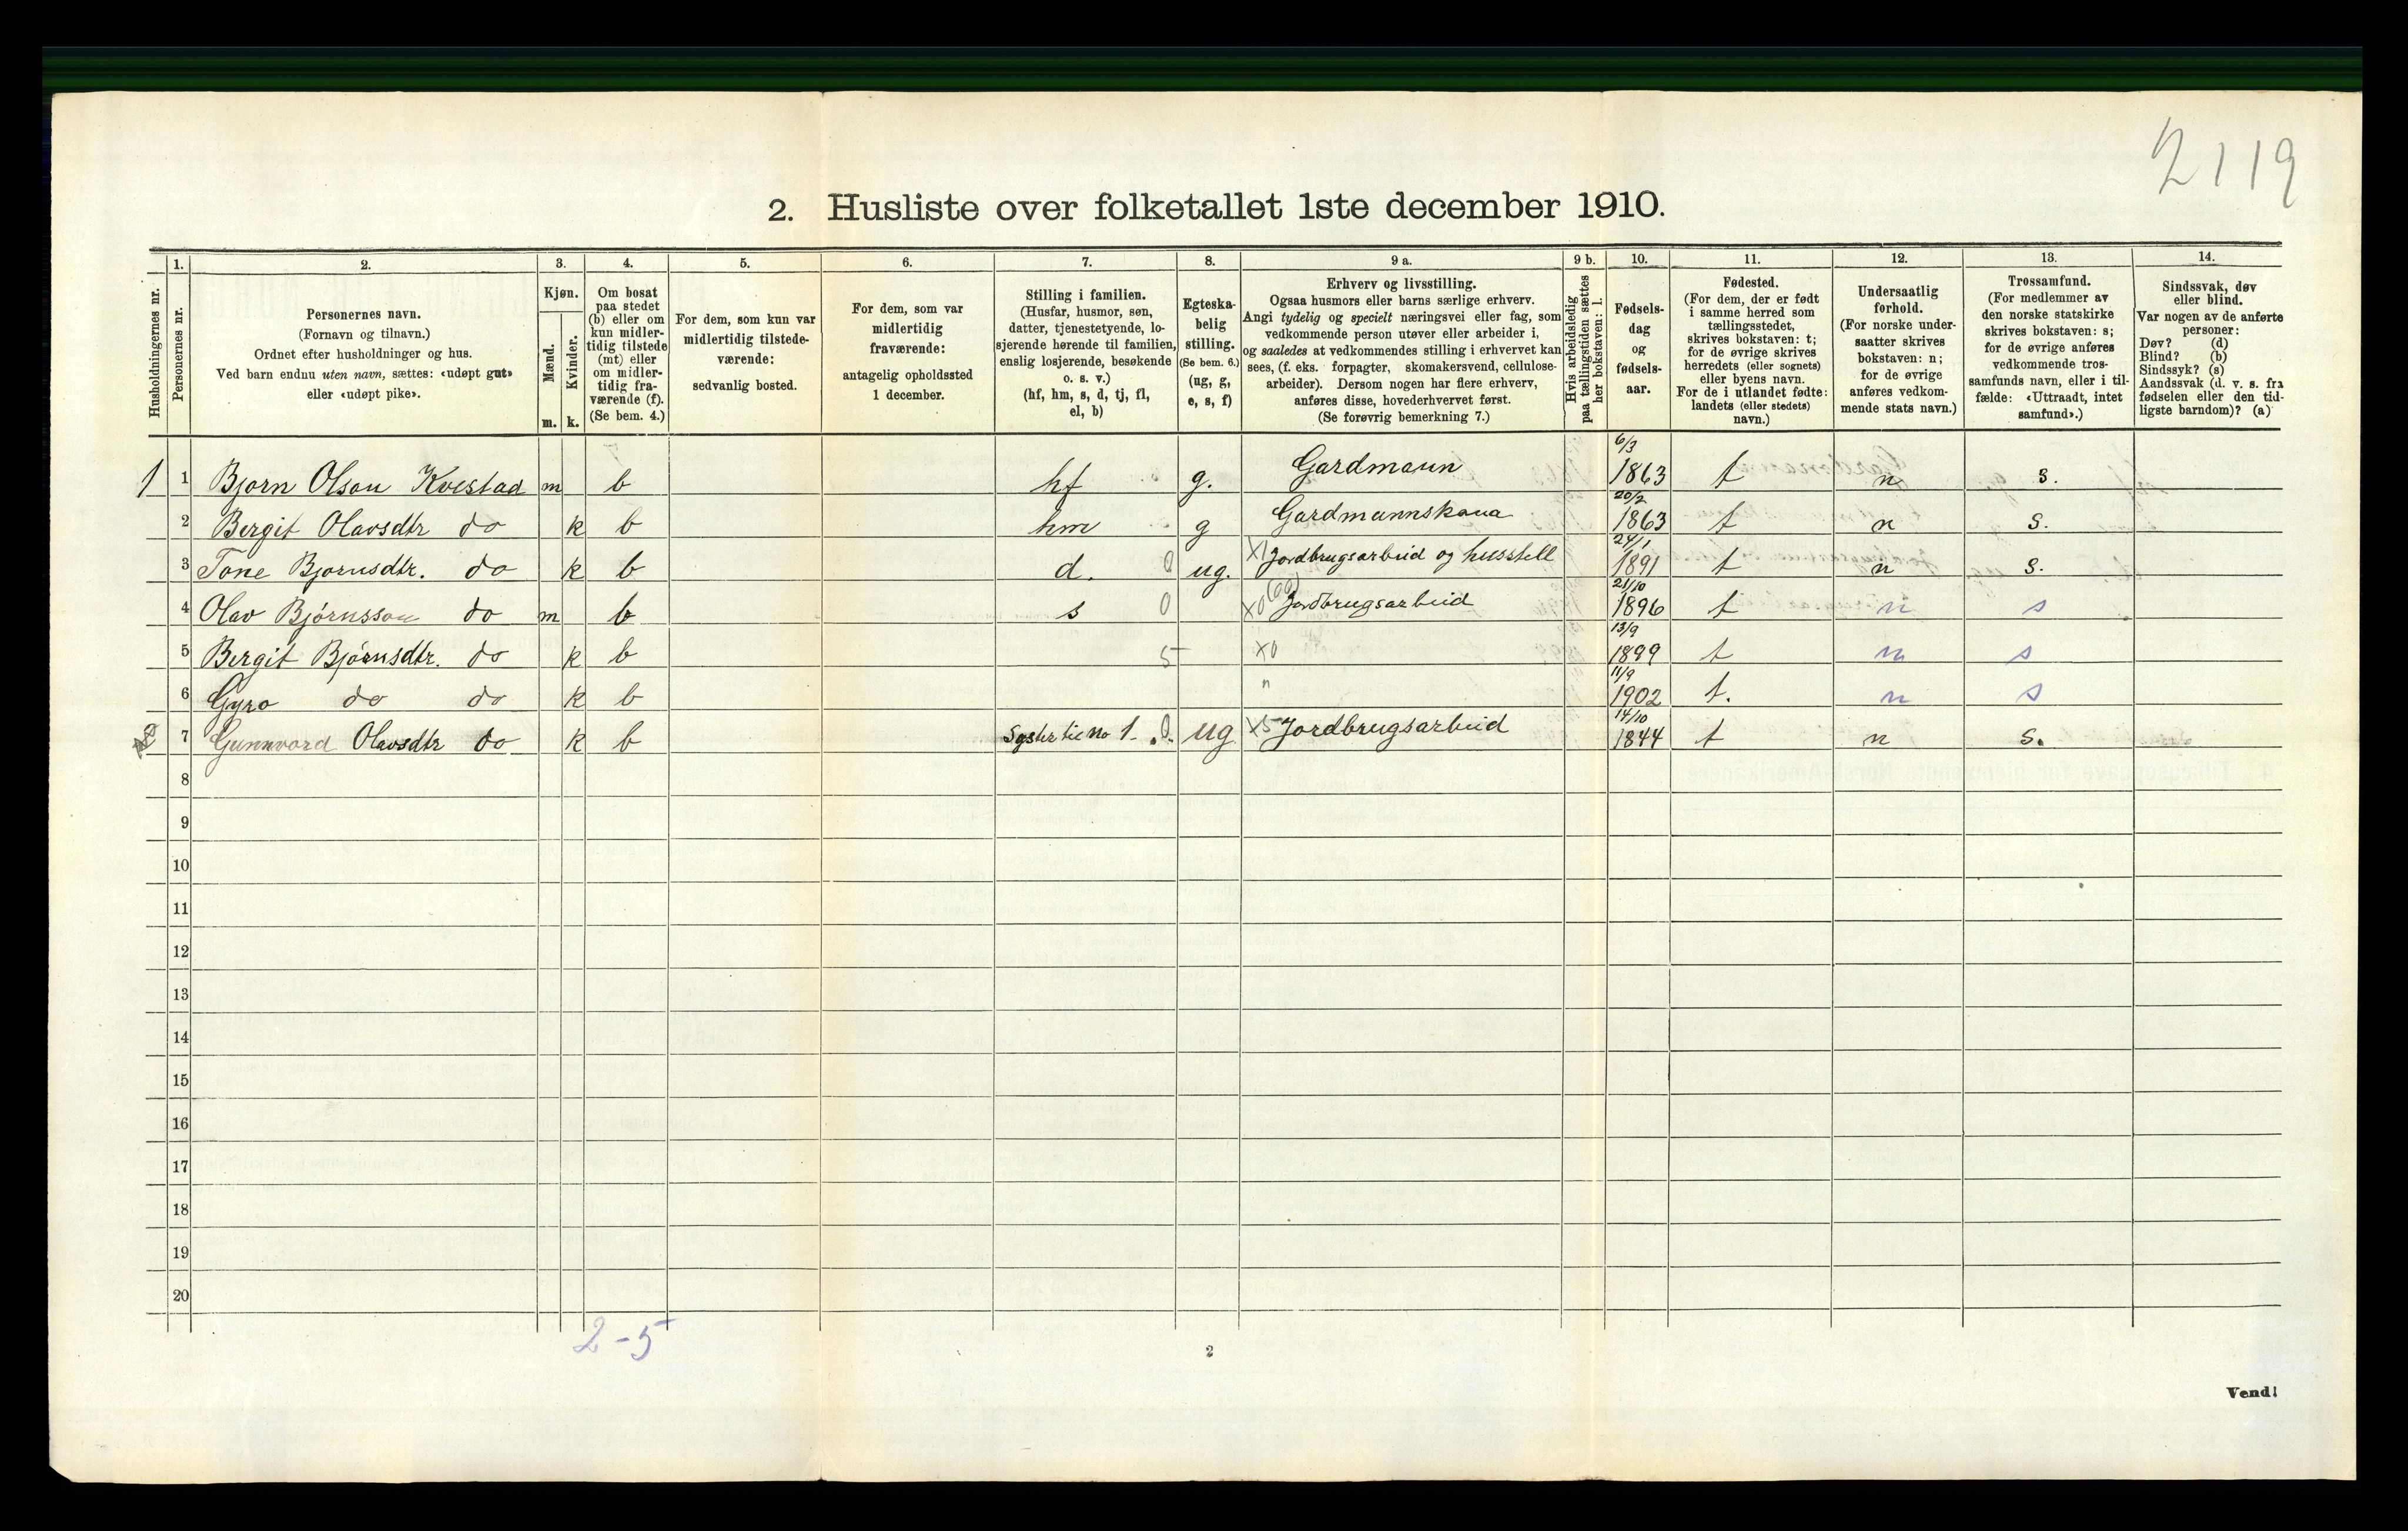 2119
2. Husliste over folketallet 1ste december 1910.
Husholdningernes nr.
1.
Personernes nr.
2.
Personernes navn.
(Fornavn og tilnavn.)
Ordnet efter husholdninger og hus.
Ved barn endnu uten navn, sættes: «udøpt gut»
eller «udøpt pike».
3.
Kjøn.
Mænd.
Kvinder.
m. k.
4.
Om bosat
paa stedet
(b) eller om
kun midler-
tidig tilstede
(mt) eller
om midler-
tidig fra-
værende (f).
(Se bem. 4.)
5.
For dem, som kun var
midlertidig tilstede-
værende:
sedvanlig bosted.
6.
For dem, som var
midlertidig
fraværende:
antagelig opholdssted
1 december.
7.
Stilling i familien.
(Husfar, husmor, søn,
datter, tjenestetyende, lo-
sjerende hørende til familien,
enslig losjerende, besøkende
o. s. v.)
(hf, hm, s, d, tj, fl,
el, b)
8.
Egteska-
belig
stilling.
(Se bem. 6.)
(ug, g,
e, s, f)
9 a.
Erhverv og livsstilling.
Ogsaa husmors eller barns særlige erhverv.
Angi tydelig og specielt næringsvei eller fag, som
vedkommende person utøver eller arbeider i,
og saaledes at vedkommendes stilling i erhvervet kan
sees, (f. eks. forpagter, skomakersvend, cellulose-
arbeider). Dersom nogen har flere erhverv,
anføres disse, hovederhvervet først.
(Se forøvrig bemerkning 7.)
9 b.
Hvis arbeidsledig
paa tællingstiden sættes
her bokstaven: l.
10.
Fødsels-
dag
og
fødsels-
aar.
11.
Fødested.
(For dem, der er født
i samme herred som
tællingsstedet,
skrives bokstaven: t;
for de øvrige skrives
herredets (eller sognets)
eller byens navn.
For de i utlandet fødte:
landets (eller stedets)
navn.)
12.
Undersaatlig
forhold.
(For norske under-
saatter skrives
bokstaven: n;
for de øvrige
anføres vedkom-
mende stats navn.)
13.
Trossamfund.
(For medlemmer av
den norske statskirke
skrives bokstaven: s;
for de øvrige anføres
vedkommende tros-
samfunds navn, eller i til-
fælde: «Uttraadt, intet
samfund».)
14.
Sindssvak, døv
eller blind.
Var nogen av de anførte
personer:
Døv? (d)
Blind? (b)
Sindssyk? (s)
Aandssvak (d. v. s. fra
fødselen eller den tid-
ligste barndom)? (a)
1 1 Bjorn Olson Kvestad m b hf g. Gardmann 6/3 1863 t n s.
2 Bergit Olavsdtr do k b hm g Gardmannskona 20/2 1863 t n s.
3 Tone Bjornsdtr. do k b d. 0 ug. X1 Jordbrugsarbeid og husstell 24/1 1891 t n s.
4 Olav Bjørnsson do m b s 0 X0 Jordbrugsarbeid 21/10 1896 t n s
5 Bergit Bjørnsdtr. do k b 5 X0 13/9 1899 t n s
6 Gyro do do k b " 11/9 1902 t. n s
7 Gunnvord Olavsdtr do k b Syster til no 1. 0. ug X5 Jordbrugsarbeid 14/10 1844 t n s.
8
9
10
11
12
13
14
15
16
17
18
19
20
2-5
2
Vend!